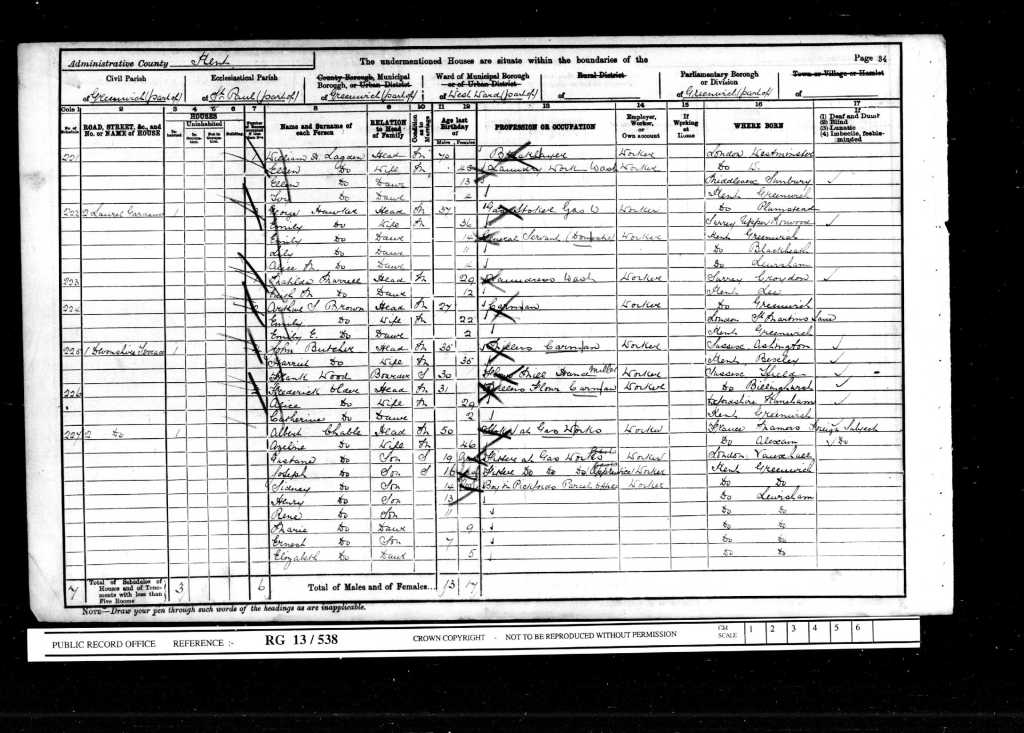 Administrative County Kent The undermentioned Houses are situate within the boundaries of the Page 34
Civil Parish Ecclesiastical Parish County Borough, Municipal Borough, or Urban District Ward of Municipal Borough or of Urban District Rural District Parliamentary Borough or Division Town or Village or Hamlet
of Greenwich (part of) of St Paul (part of) of Greenwich (part of) of West Ward (part of) of of Greenwich (part of) of
Cols 1 2 3 4 5 6 7 8 9 10 11 12 13 14 15 16 17
No. of Schedule ROAD, STREET, &c., and No. or NAME of HOUSE HOUSES Inhabited Uninhabited In Occupation Not in Occupation Building Name and Surname of each Person RELATION to Head of Family Condition as to Marriage Age last Birthday of Males Females PROFESSION OR OCCUPATION Employer, Worker, or Own account If Working at Home WHERE BORN If (1) Deaf and Dumb (2) Blind (3) Lunatic (4) Imbecile, feeble-minded
221 William H. Lagden Head M 40 Worker London Westminster
Ellen Do Wife M Laundry Work Wash Worker Do
Ellen Do Daur 13 Middlesex Sunbury
Do Daur 2 Kent Greenwich
222 Laurel 1 George Hawker Head M 37 Gas Stoker Gas W Worker Do Plumstead
Emily Do Wife M 36 Surrey Upper Norwood
Emily Do Daur 14 General Servant (Domestic) Worker Kent Greenwich
Lily Do Daur 11 Do Blackheath
Alice M. Do Daur Do Lewisham
223 Matilda Farrell Head M 29 Laundress Wash Worker Surrey Croydon
M. Do Daur 12 Kent Lee
224 Arthur S Brown Head M 27 Carman Worker Do Greenwich
Emily Do Wife M 22 London St Martins Lane
Emily E. Do Daur 2 Kent Greenwich
225 1 Devonshire Terrace 1 John Butcher Head M 35 Carman Worker Sussex Ashington
Harriet Do Wife M 35 Kent Bexley
Frank Wood Boarder S 30 Worker Sussex
226 Frederick Head M 31 Carman Worker Do Billinghurst
Alice Do Wife M 29
Catherine Do Daur 2 Kent Greenwich
227 2 Do 1 Albert Chable Head M 50 Stoker at Gas Works Worker France Foreign Subject
Do Wife M 46 Do Do
Gustave Do Son S 19 at Gas Works Worker London Vauxhall
Joseph Do Son S 16 Do Do Do Apprentice Worker Kent Greenwich
Sidney Do Son 14 Boy in Pickfords Parcel Office Worker Do Do
Henry Do Son 13 Do Lewisham
Rene Do Son 11 Do Do
Marie Do Daur 9 Do Do
Ernest Do Son 7 Do Do
Elizabeth Do Daur 5 Do Do
7 Total of Schedules of Houses and of Tenements with less than Five Rooms 3 6 Total of Males and of Females... 13 17
NOTE—Draw your pen through such words of the headings as are inapplicable.
PUBLIC RECORD OFFICE REFERENCE :- RG 13 / 538 CROWN COPYRIGHT - NOT TO BE REPRODUCED WITHOUT PERMISSION CM SCALE 1 2 3 4 5 6